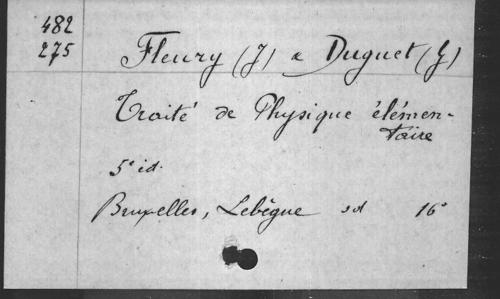 482
275
Fleury (J) & Duguet (G)
Traité de Physique élémen-
taire
5e éd.
Bruxelles, Lebègue sd 16°